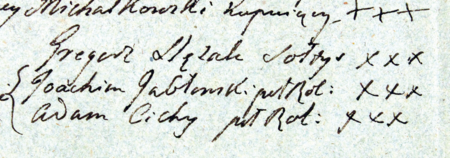 Michałkowski kupujący +++
Gregorz Slęzak Sołtys xxx
Joachim Jabłonski półRol: xxx
Adam Cichy półRol: xxx